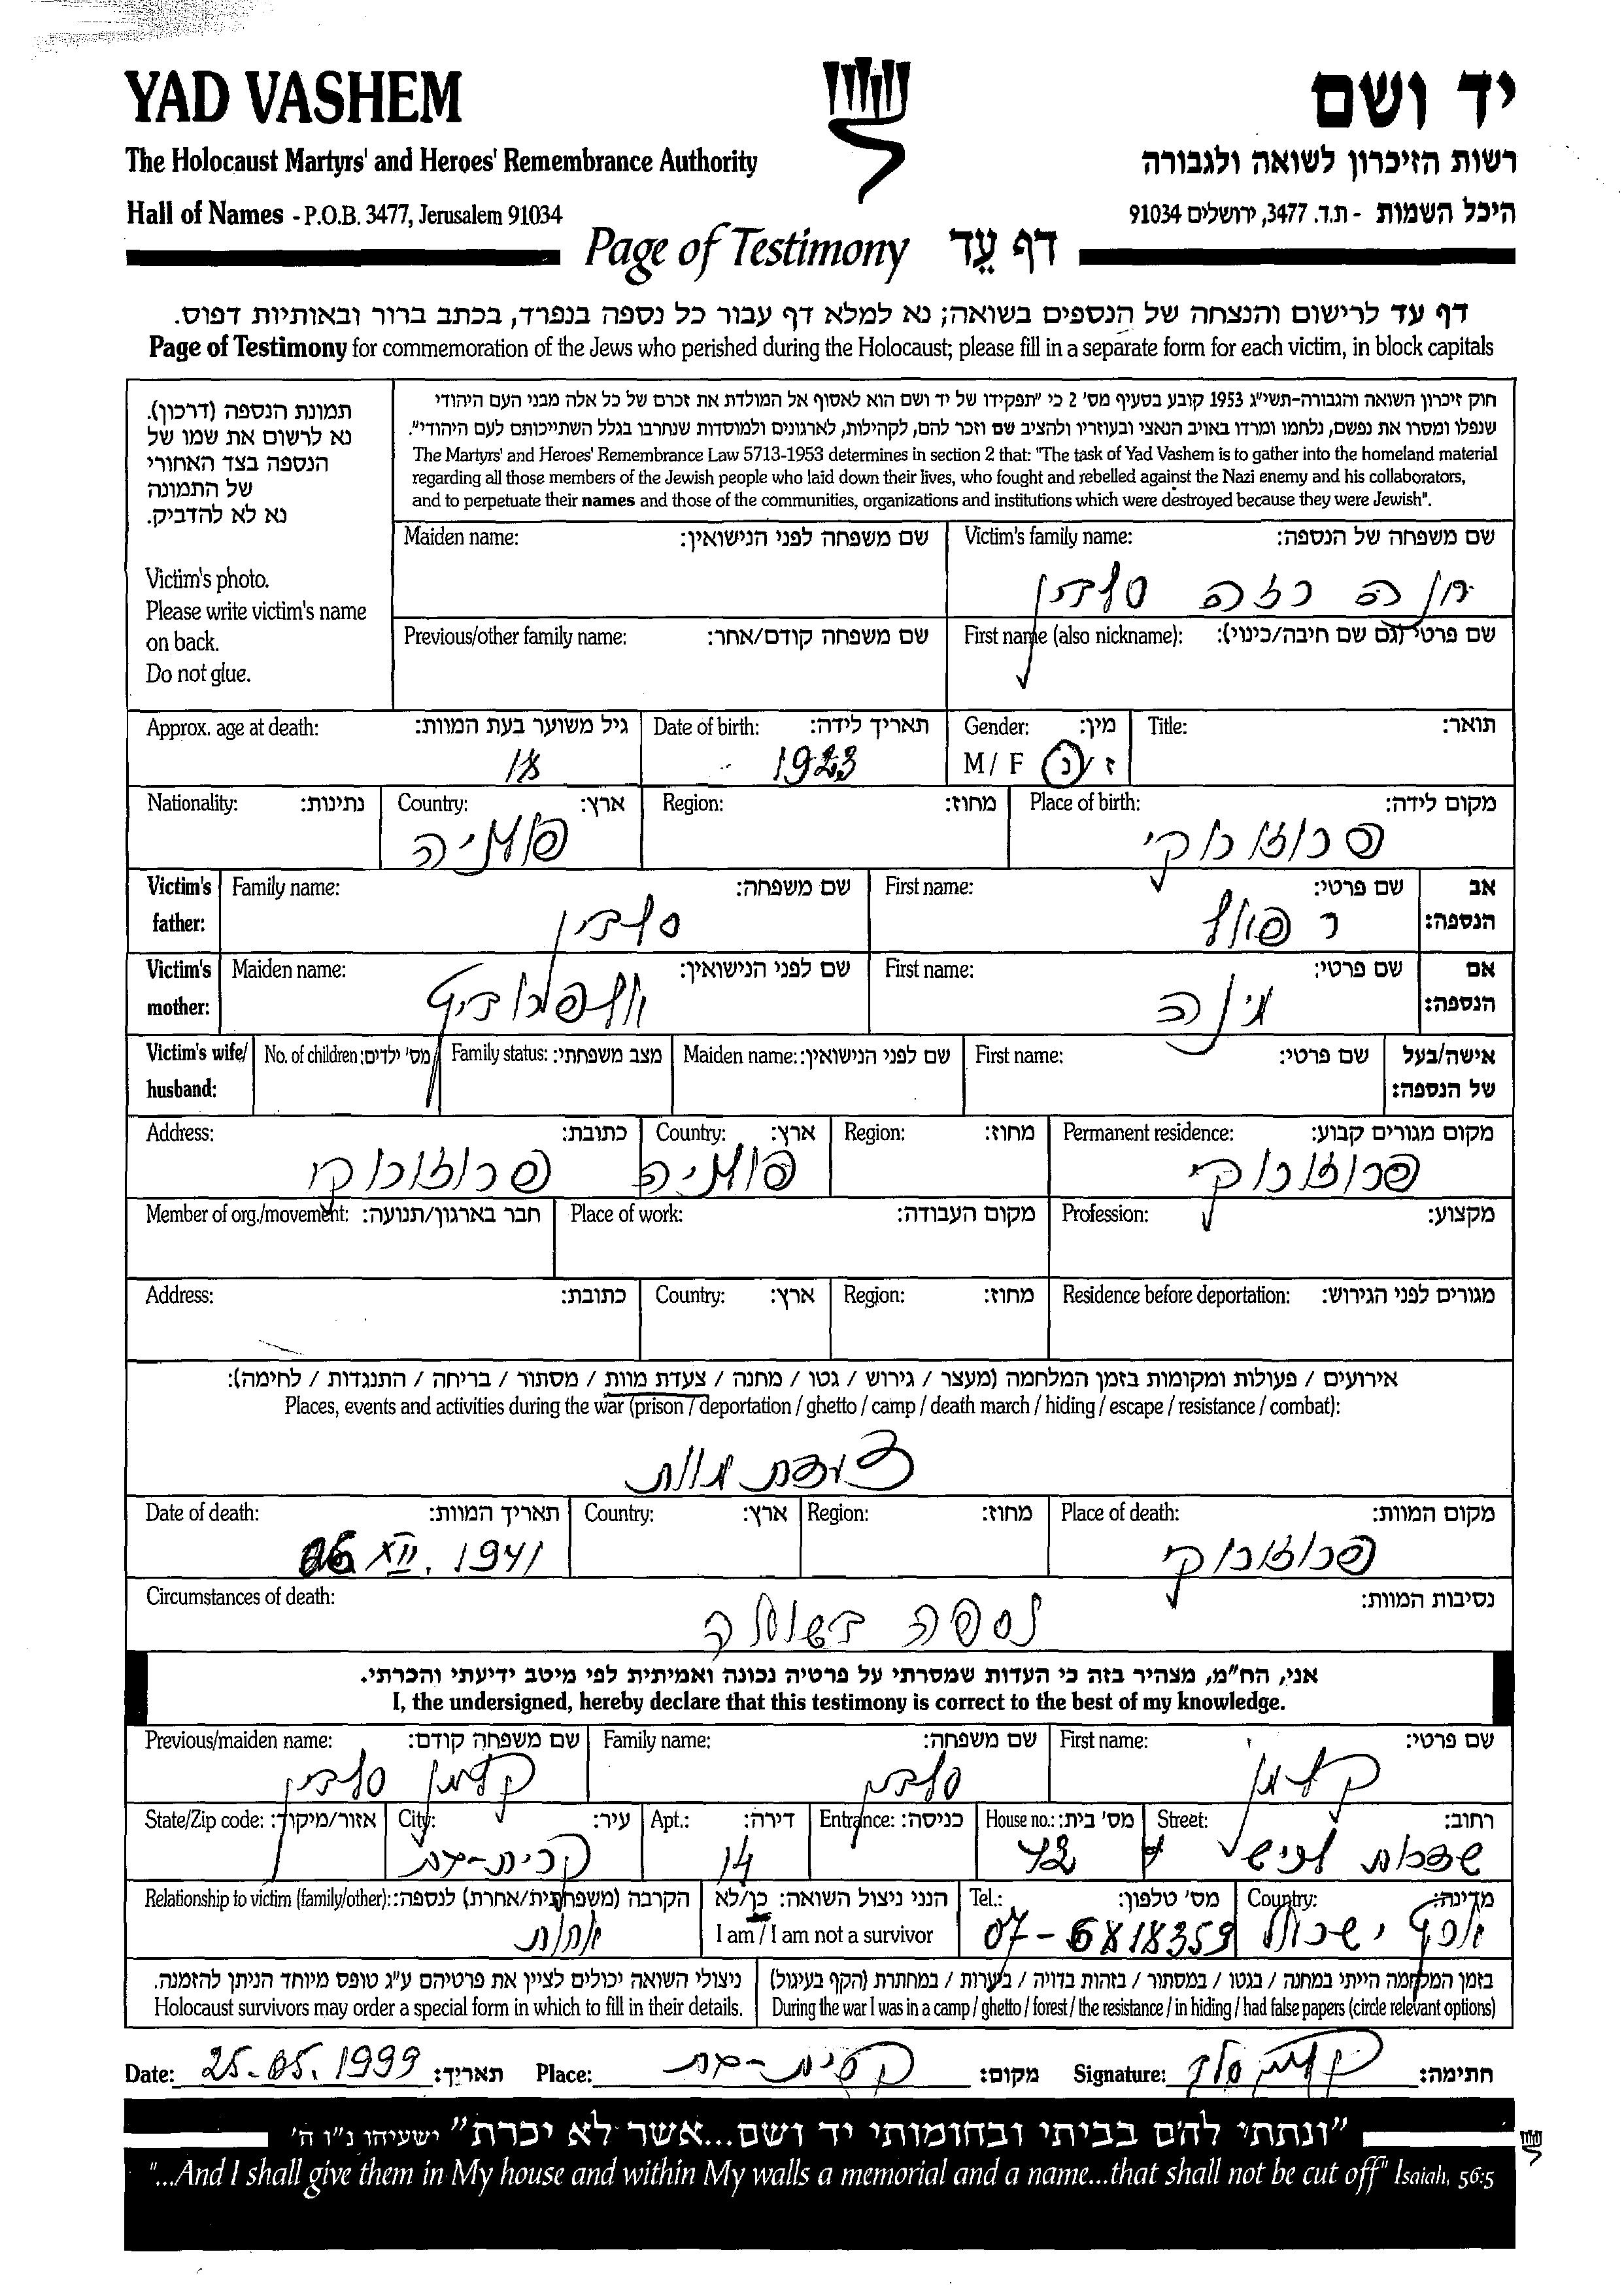 YAD VASHEM
יד ושם
The Holocaust Martyrs' and Heroes' Remembrance Authority
רשות הזיכרון לשואה ולגבורה
Hall of Names - P.O.B. 3477, Jerusalem 91034
היכל השמות - ת.ד. 3477, ירושלים 91034
Page of Testimony דף עֵד
דף עד לרישום והנצחה של הנספים בשואה; נא למלא דף עבור כל נספה בנפרד, בכתב ברור ובאותיות דפוס.
Page of Testimony for commemoration of the Jews who perished during the Holocaust; please fill in a separate form for each victim, in block capitals
תמונת הנספה (דרכון).
נא לרשום את שמו של
הנספה בצד האחורי
של התמונה
נא לא להדביק.
Victim's photo.
Please write victim's name
on back.
Do not glue.
חוק זיכרון השואה והגבורה-תשי"ג 1953 קובע בסעיף מס' 2 כי "תפקידו של יד ושם הוא לאסוף אל המולדת את זכרם של כל אלה מבני העם היהודי
שנפלו ומסרו את נפשם, נלחמו ומרדו באויב הנאצי ובעוזריו ולהציב שם וזכר להם, לקהילות, לארגונים ולמוסדות שנחרבו בגלל השתייכותם לעם היהודי".
The Martyrs' and Heroes' Remembrance Law 5713-1953 determines in section 2 that: "The task of Yad Vashem is to gather into the homeland material
regarding all those members of the Jewish people who laid down their lives, who fought and rebelled against the Nazi enemy and his collaborators,
and to perpetuate their names and those of the communities, organizations and institutions which were destroyed because they were Jewish".
Victim's family name: שם משפחה של הנספה:
Maiden name: שם משפחה לפני הנישואין:
חנה
First name (also nickname): שם פרטי (גם שם חיבה/כינוי):
Previous/other family name: שם משפחה קודם/אחר:
Title: תואר:
Gender: מין: M / F ז / נ
Date of birth: תאריך לידה: 1923
Approx. age at death: גיל משוער בעת המוות: 18
Place of birth: מקום לידה:
Region: מחוז:
Country: ארץ:
Nationality: נתינות:
Victim's father: אב הנספה:
First name: שם פרטי:
Family name: שם משפחה:
Victim's mother: אם הנספה:
First name: שם פרטי:
Maiden name: שם לפני הנישואין:
Victim's wife/ husband: אישה/בעל של הנספה:
First name: שם פרטי:
Maiden name: שם לפני הנישואין:
Family status: מצב משפחתי:
No. of children: מס' ילדים:
Permanent residence: מקום מגורים קבוע:
Region: מחוז:
Country: ארץ:
Address: כתובת:
Profession: מקצוע:
Place of work: מקום העבודה:
Member of org./movement: חבר בארגון/תנועה:
Residence before deportation: מגורים לפני הגירוש:
Region: מחוז:
Country: ארץ:
Address: כתובת:
אירועים / פעולות ומקומות בזמן המלחמה (מעצר / גירוש / גטו / מחנה / צעדת מוות / מסתור / בריחה / התנגדות / לחימה):
Places, events and activities during the war (prison / deportation / ghetto / camp / death march / hiding / escape / resistance / combat):
צעדת מוות
Place of death: מקום המוות:
Region: מחוז:
Country: ארץ:
Date of death: תאריך המוות: XII. 1941
Circumstances of death: נסיבות המוות:
נספה בשואה
אני, הח"מ, מצהיר בזה כי העדות שמסרתי על פרטיה נכונה ואמיתית לפי מיטב ידיעתי והכרתי.
I, the undersigned, hereby declare that this testimony is correct to the best of my knowledge.
First name: שם פרטי: קלמן
Family name: שם משפחה:
Previous/maiden name: שם משפחה קודם: קלמן
Street: רחוב:
House no.: מס' בית:
Entrance: כניסה:
Apt.: דירה: 14
City: עיר: קרית-גת
State/Zip code: אזור/מיקוד:
Country: מדינה: ישראל
Tel.: מס' טלפון: 07-6818359
הנני ניצול השואה: כן/לא
I am / I am not a survivor
Relationship to victim (family/other): הקרבה (משפחתית/אחרת) לנספה:
אחות
בזמן המלחמה הייתי במחנה / בגטו / במסתור / בזהות בדויה / ביערות / במחתרת (הקף בעיגול)
During the war I was in a camp / ghetto / forest / the resistance / in hiding / had false papers (circle relevant options)
ניצולי השואה יכולים לציין את פרטיהם ע"ג טופס מיוחד הניתן להזמנה.
Holocaust survivors may order a special form in which to fill in their details.
Date: 25.05.1999 תאריך: Place: קרית-גת מקום: Signature: חתימה:
"ונתתי להם בביתי ובחומותי יד ושם...אשר לא יכרת" ישעיהו נ"ו ה'
"...And I shall give them in My house and within My walls a memorial and a name...that shall not be cut off" Isaiah, 56:5